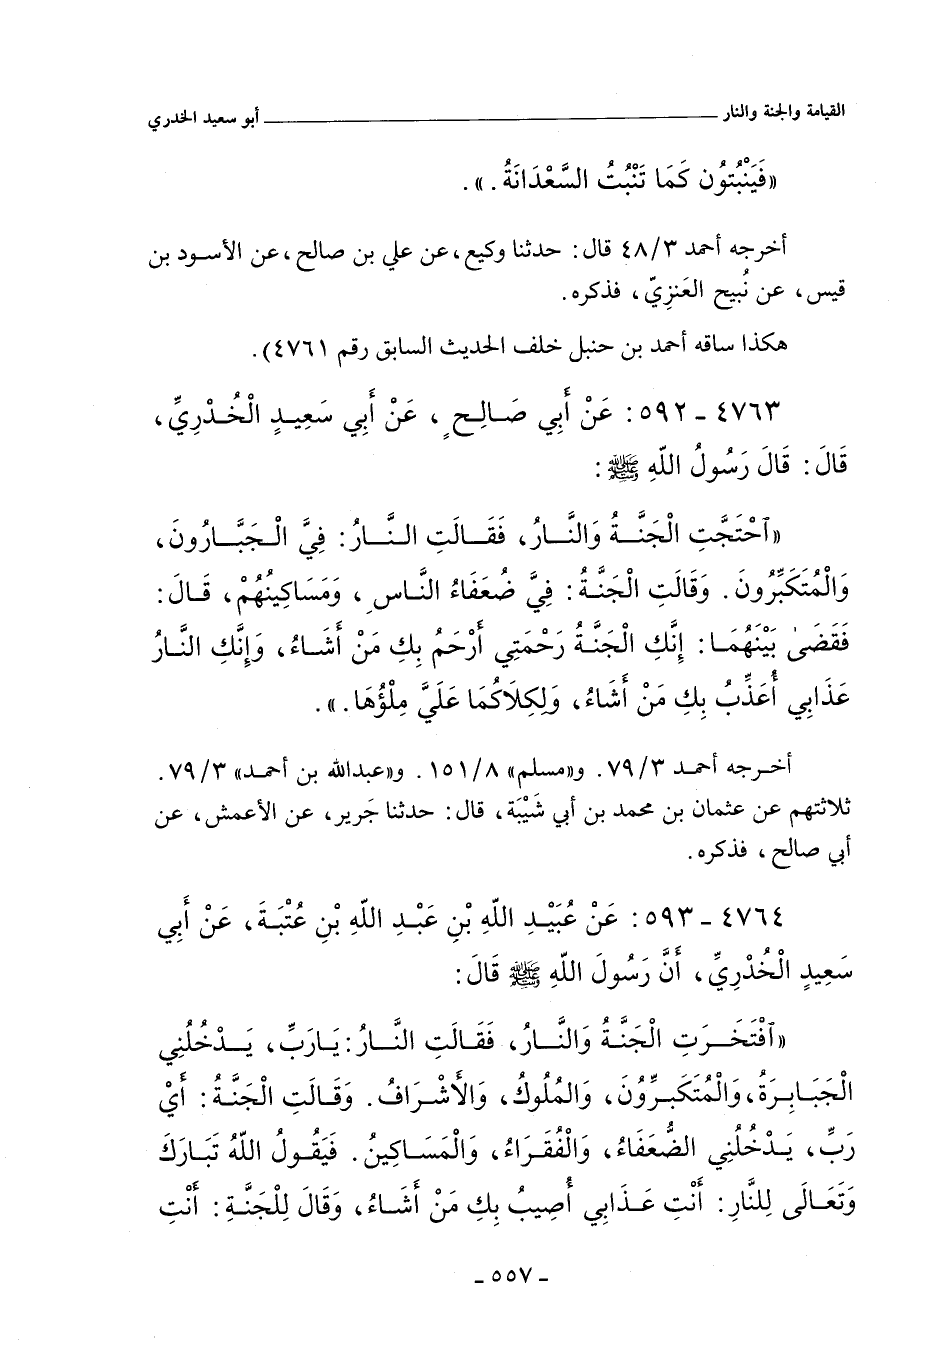 القيامة والجنة والنار ــــــــــــ أبو سعيد الخدري
«فَيَنْبُتُون كَمَا تَنْبُتُ السَّعْدَانَةُ . » .
أخرجه أحمد ٤٨/٣ قال : حدثنا وكيع ، عن علي بن صالح ، عن الأسود بن
قيس ، عن نُبيح العَنزِيّ ، فذكره .
هكذا ساقه أحمد بن حنبل خلف الحديث السابق رقم ٤٧٦١) .
٤٧٦٣ - ٥٩٢ : عَنْ أَبِي صَالِحٍ ، عَنْ أَبِي سَعِيدٍ الْخُدْرِيِّ ،
قَالَ : قَالَ رَسُولُ اللّهِ ﷺ :
«اَحْتَجَّتِ الْجَنَّةُ وَالنَّارُ ، فَقَالَتِ النَّارُ : فِيَّ الْجَبَّارُونَ ،
وَالْمُتَكَبِّرُونَ . وَقَالَتِ الْجَنَّةُ : فِيَّ ضُعَفَاءُ النَّاسِ ، وَمَسَاكِينُهُمْ ، قَالَ :
فَقَضَىٰ بَيْنَهُمَا : إِنَّكِ الْجَنَّةُ رَحْمَتِي أَرْحَمُ بِكِ مَنْ أَشَاءُ ، وَإِنَّكِ النَّارُ
عَذَابِي أُعَذِّبُ بِكِ مَنْ أَشَاءُ ، وَلِكِلَاكُمَا عَلَيَّ مِلْؤُهَا . » .
أخرجه أحمد ٧٩/٣ . و«مسلم» ١٥١/٨ . و«عبدالله بن أحمد» ٧٩/٣ .
ثلاثتهم عن عثمان بن محمد بن أبي شَيْبَة ، قال : حدثنا جَرير ، عن الأعمش ، عن
أبي صالح ، فذكره .
٤٧٦٤ - ٥٩٣ : عَنْ عُبَيْدِ اللّهِ بْنِ عَبْدِ اللّهِ بْنِ عُتْبَةَ ، عَنْ أَبِي
سَعِيدٍ الْخُدْرِيِّ ، أَنَّ رَسُولَ اللّهِ ﷺ قَالَ :
«اَفْتَخَرَتِ الْجَنَّةُ وَالنَّارُ ، فَقَالَتِ النَّارُ : يَارَبِّ ، يَدْخُلُنِي
الْجَبَابِرَةُ ، وَالْمُتَكَبِّرُونَ ، وَالمُلُوكُ ، وَالْأَشْرَافُ . وَقَالَتِ الْجَنَّةُ : أَيْ
رَبِّ ، يَدْخُلُنِي الضُّعَفَاءُ ، وَالْفُقَرَاءُ ، وَالْمَسَاكِينُ . فَيَقُولُ اللّهُ تَبَارَكَ
وَتَعَالَى لِلنَّارِ : أَنْتِ عَذَابِي أُصِيبُ بِكِ مَنْ أَشَاءُ ، وَقَالَ لِلْجَنَّةِ : أَنْتِ
- ٥٥٧ -